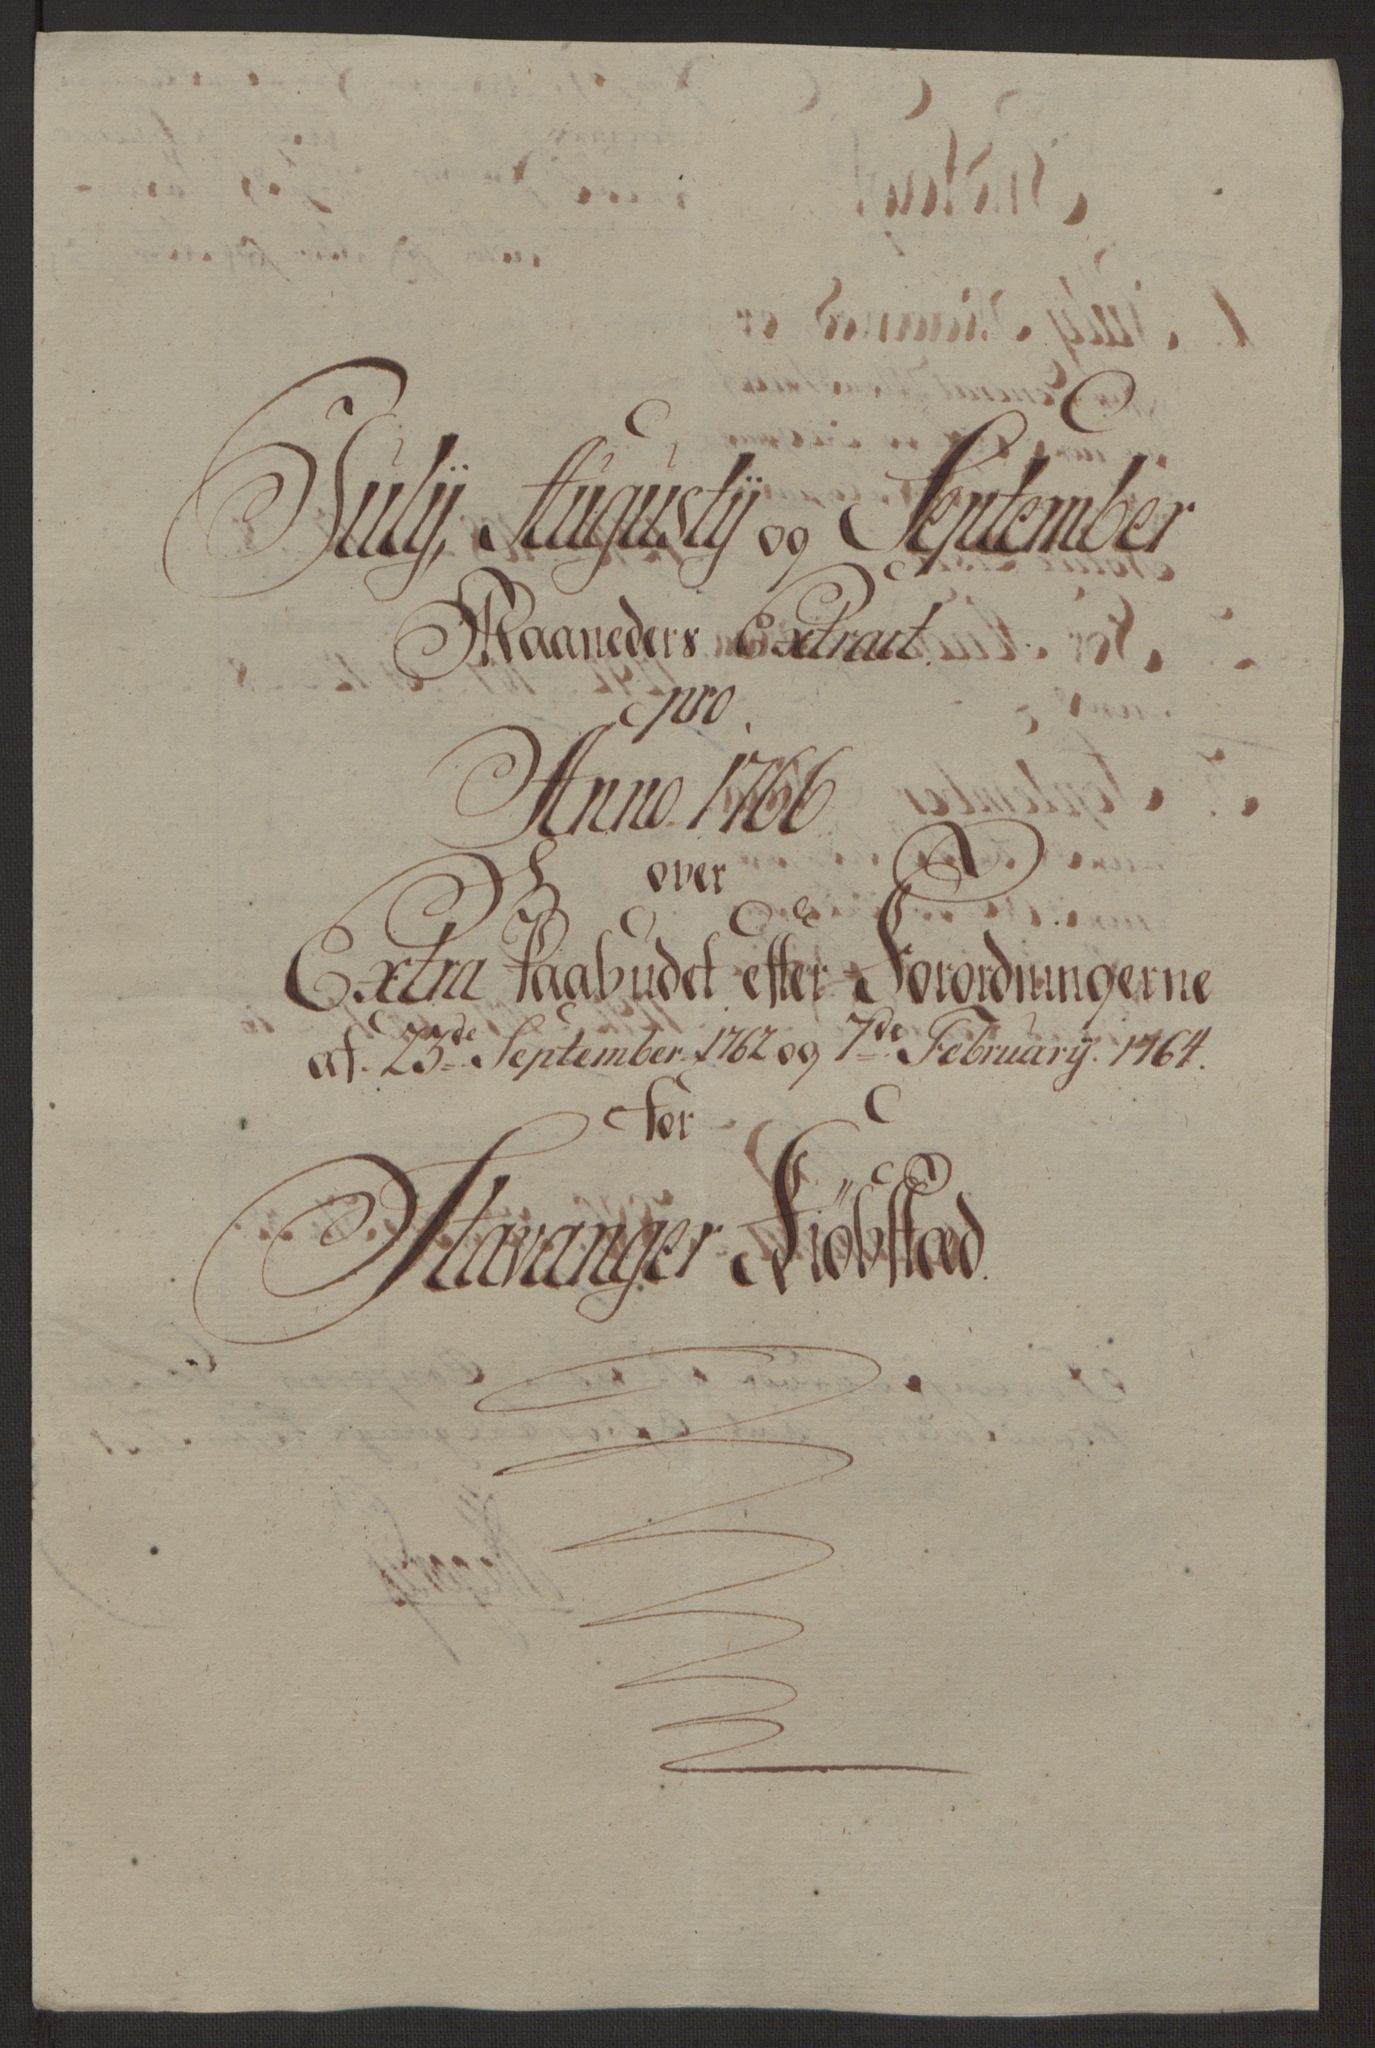 Julÿ, Augustÿ og September
Maaneders Extract.
pro.
Anno. 1766
over
Extra Paabudet efter Forordningerne
af. 23de September. 1762 og 7de Februarÿ. 1764.
for
Stavanger Kiöbstæd.